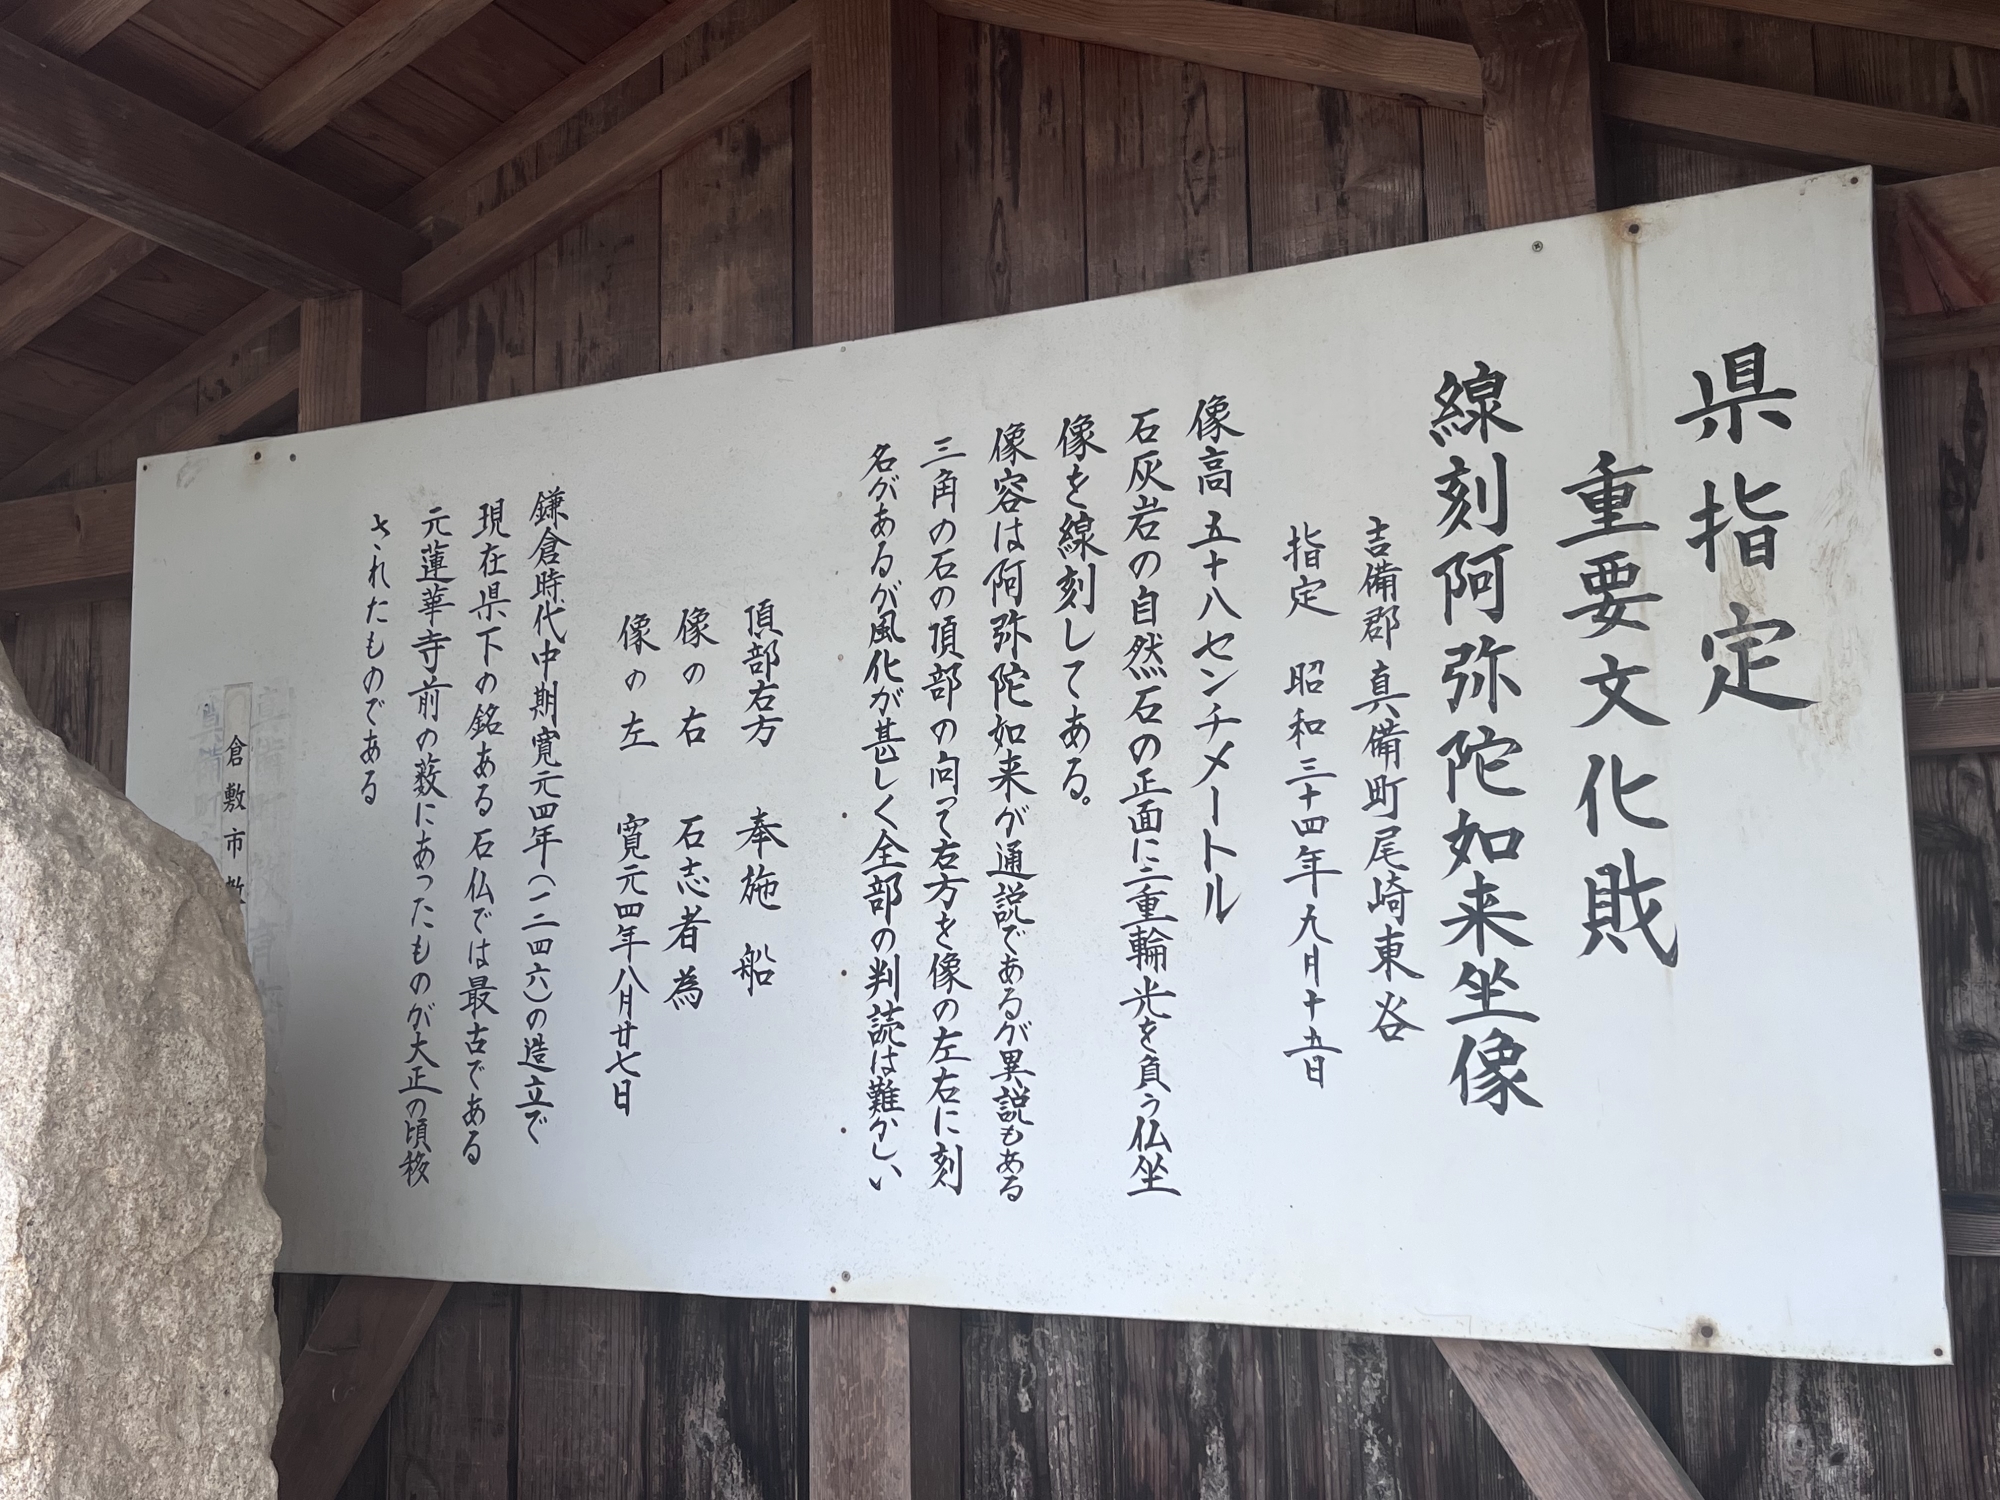 県指定
重要文化財
線刻阿弥陀如来坐像
吉備郡真備町尾崎東谷
指定　昭和三十四年九月十五日
像高五十八センチメートル
石灰岩の自然石の正面に二重輪光を負う仏坐
像を線刻してある。
像容は阿弥陀如来が通説であるが異説もある
三角の石の頂部の向って右方を像の左右に刻
名があるが風化が甚しく全部の判読は難かしい
頂部右方　奉施　船
像の右　石志者為
像の左　寛元四年八月廿七日
鎌倉時代中期寛元四年(一二四六)の造立で
現在県下の銘ある石仏では最古である
元蓮華寺前の薮にあったものが大正の頃移
されたものである
倉敷市教